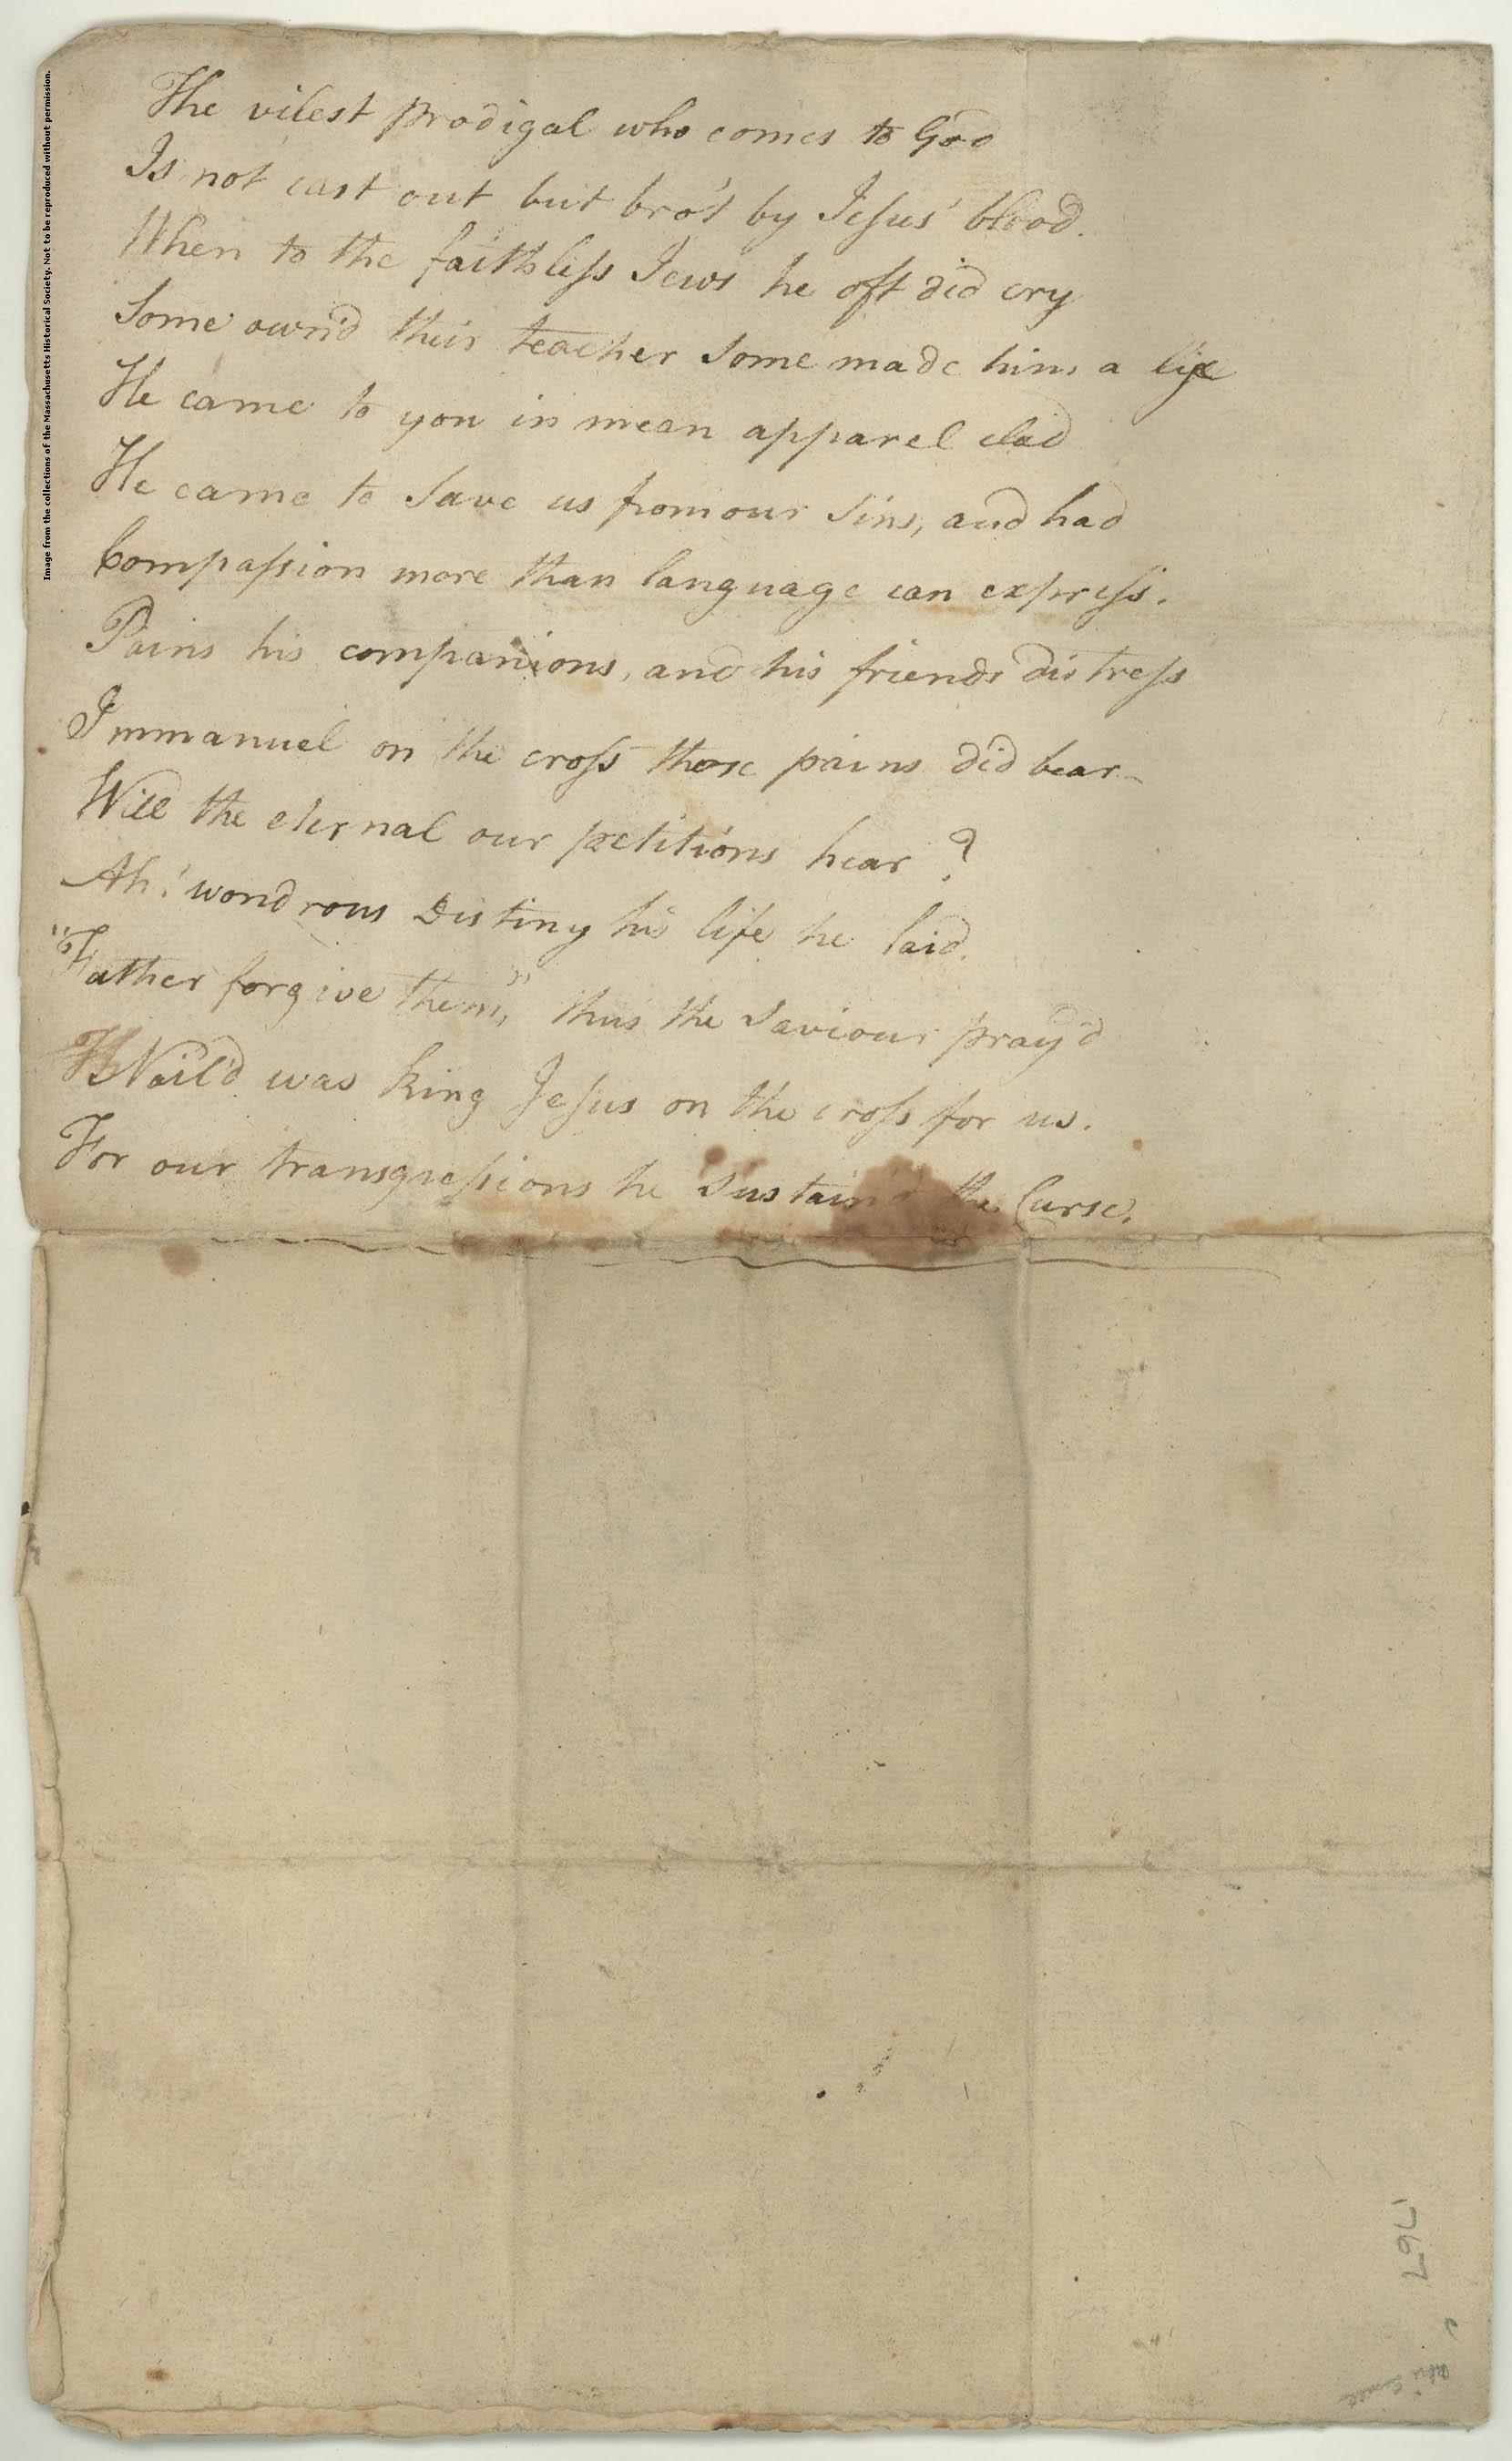 The vilest prodigal who comes to God
Is not cast out but bro't by Jesus' blood.
When to the faithless Jews he oft did cry
Some own'd their teacher some made him a lye
He came to you in mean apparel clad
He came to Save us from our Sins, and had
Compassion more than language can express.
Pains his companions, and his friends distress
Immanuel on the cross those pains did bear—
Will the eternal our petitions hear?
Ah! wondrous Distiny his life he laid.
"Father forgive them," thus the Saviour pray'd
Nail'd was King Jesus on the cross for us.
For our transgressions he sustain'd the Curse.
1767
Image from the collections of the Massachusetts Historical Society. Not to be reproduced without permission.